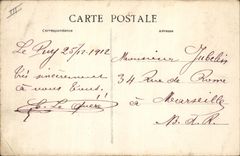 CARTE POSTALE
Correspondance
Adresse
Le Puy 25/11 1912
Très sincèrement
à vous tous!
Monsieur Jubelin
34 Rue de Rome
à Marseille
B. d. R.